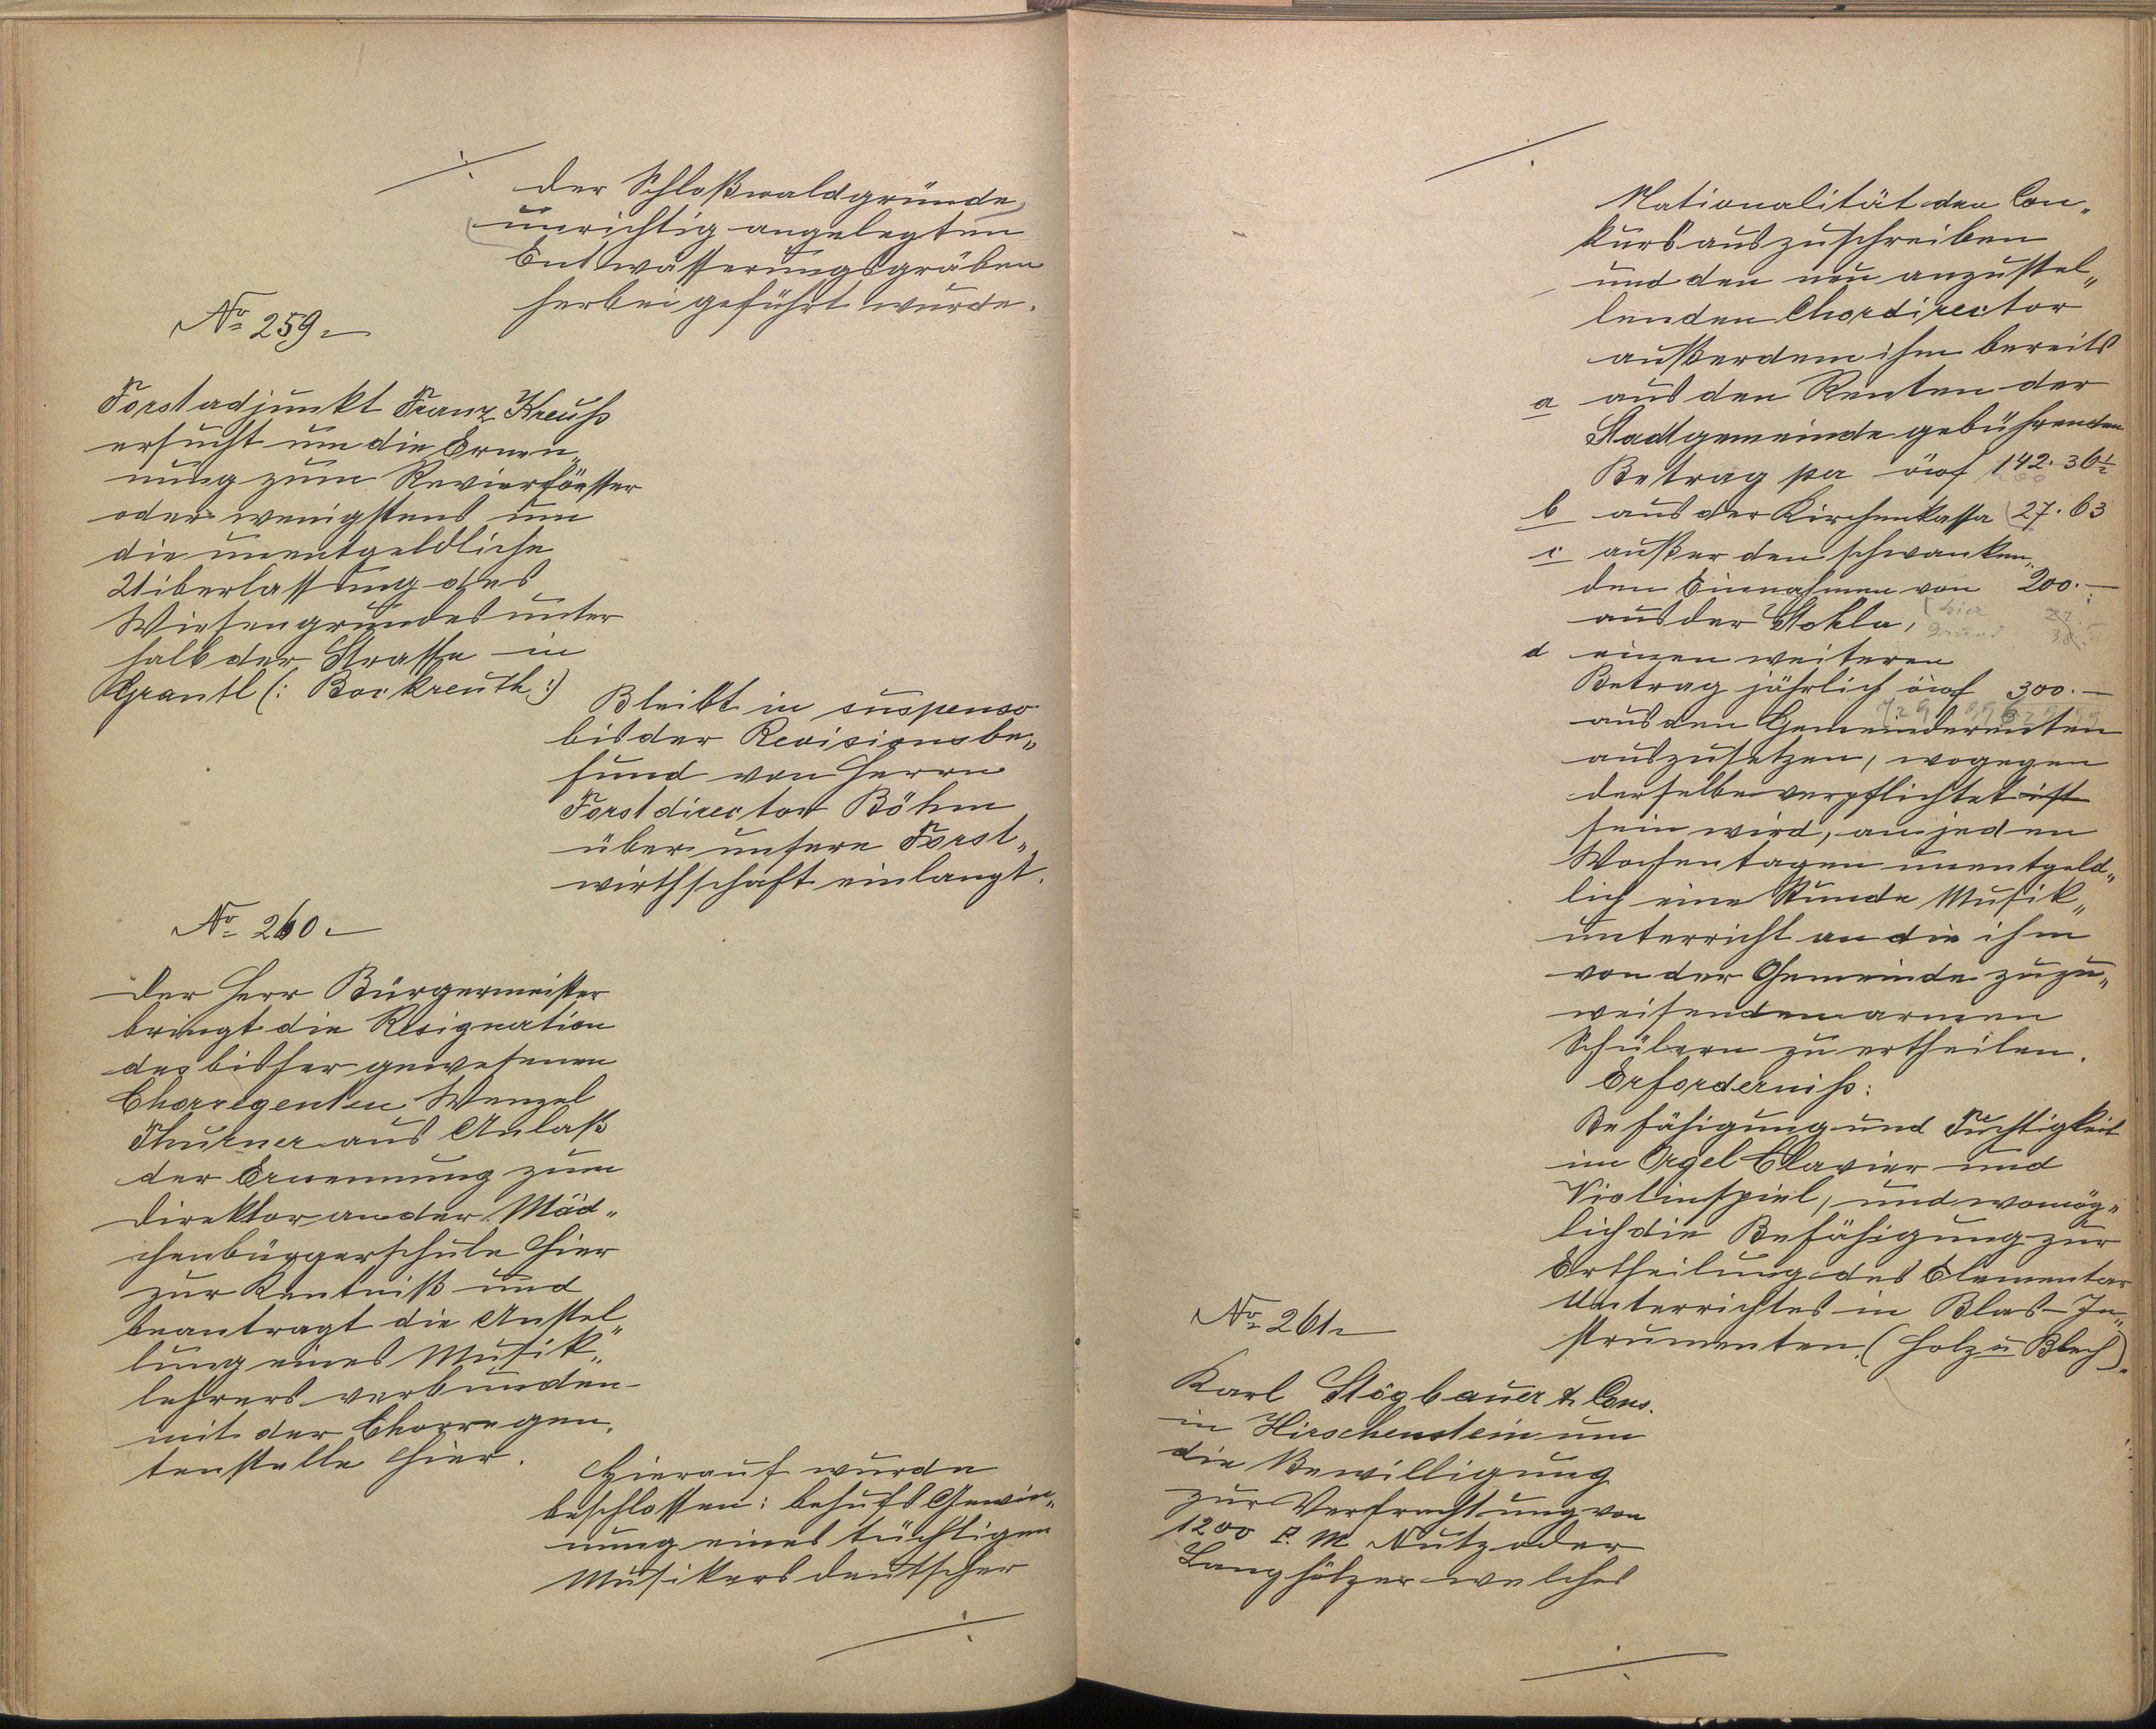 der Schloßwaldgründe
unrichtig angelegten
Entwässerungsgräben
herbeigeführt wurde.
No 259.
Forstadjunkt Franz Kreuß
ersucht um die Ernen„
nung zum Revierförster
oder wenigstens um
die unentgeldliche
Uiberlassung des
Wiesengrundes unter
halb der Strasse in
Grantl (: Bockreuth :)
Bleibt in suspenso
bis der Revisionsbe„
fund von Herrn
Forstdirector Böhm
über unsere Forst„
wirthschaft einlangt.
No 260.
Der Herr Bürgermeister
bringt die Resignation
des bisher gewesenen
Chorregenten Wenzel
Thurner aus Anlaß
der Ernennung zum
Direktor an der Mäd„
chenbürgerschule hier
zur Kentniß und
beantragt die Anstel„
lung eines Musik„
lehrers verbunden
mit der Chorregen„
tenstelle hier.
Hierauf wurde
beschlossen: behufs Gewin„
nung eines tüchtigen
Musikers deutscher
Nationalität den Con„
kurs auszuschreiben
und den neu anzustel„
lenden Chordirector
außerdem ihm bereits
a aus den Renten der
Stadtgemeinde gebührenden
Betrag per öwf 142. 36½
b aus der Kirchenkassa 27. 63
c außer den schwanken„
den Einnahmen von 200.—
aus der Stohla, hier
d einen weiteren
Betrag jährlich öwf 300.—
aus den Gemeinderenten
auszusetzen, wogegen
derselbe verpflichtet ist
sein wird, an jeden
Wochentagen unentgeld„
lich eine Stunde Musik„
unterricht an die ihm
von der Gemeinde zuzu„
weisenden armen
Schülern zu ertheilen.
Erforderniß:
Befähigung und Tüchtigkeit
im Orgel Clavier und
Violinspiel, und womög„
lich die Befähigung zur
Ertheilung des Elementar
Unterrichtes in Blas-In„
strumenten. (Holz u Blech).
No 261.
Karl Stögbauer & Cons.
in Hirschenstein um
die Bewilligung
zur Verfrachtung von
1200 R. M Nutz oder
Langhölzer welches